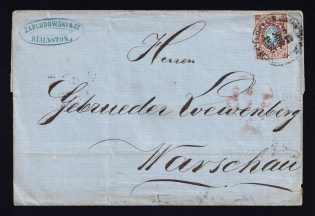 ZABLUDOWSKI & Cº
BIALYSTOK.
Herren
Gebrueder Loewenberg
Warschau